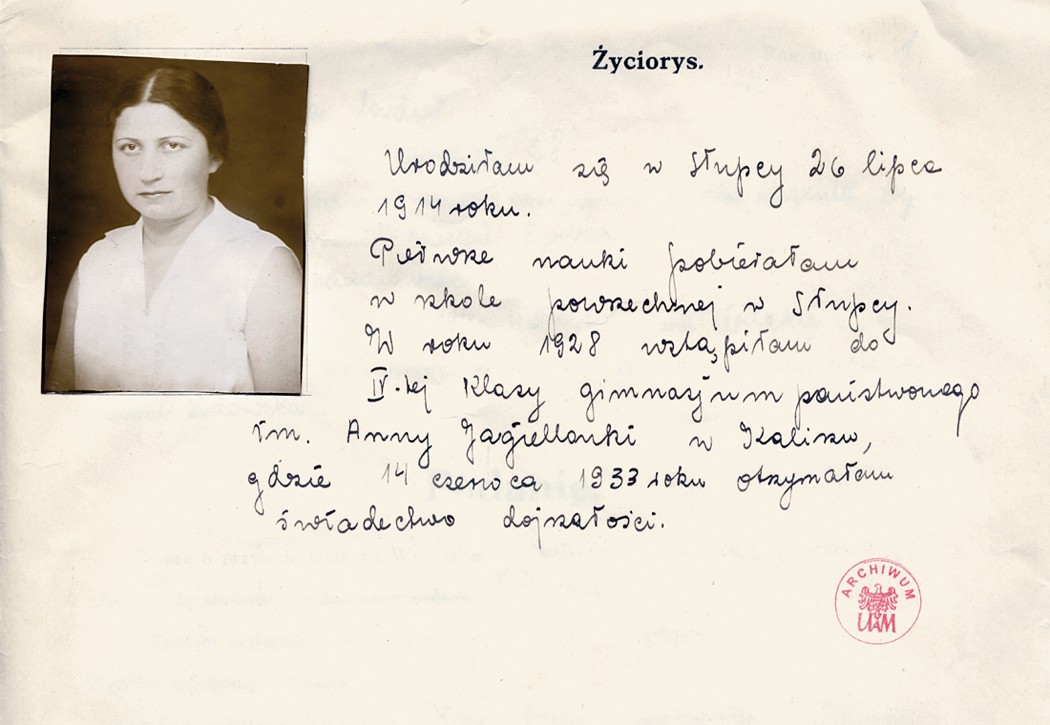 Życiorys.
Urodziłam się w Słupcy 26 lipca
1914 roku.
Pierwsze nauki pobierałam
w szkole powszechnej w Słupcy.
W roku 1928 wstąpiłam do
IV-tej klasy gimnazjum państwowego
im. Anny Jagiellonki w Kaliszu,
gdzie 14 czerwca 1933 roku otrzymałam
świadectwo dojrzałości.
ARCHIWUM
UAM